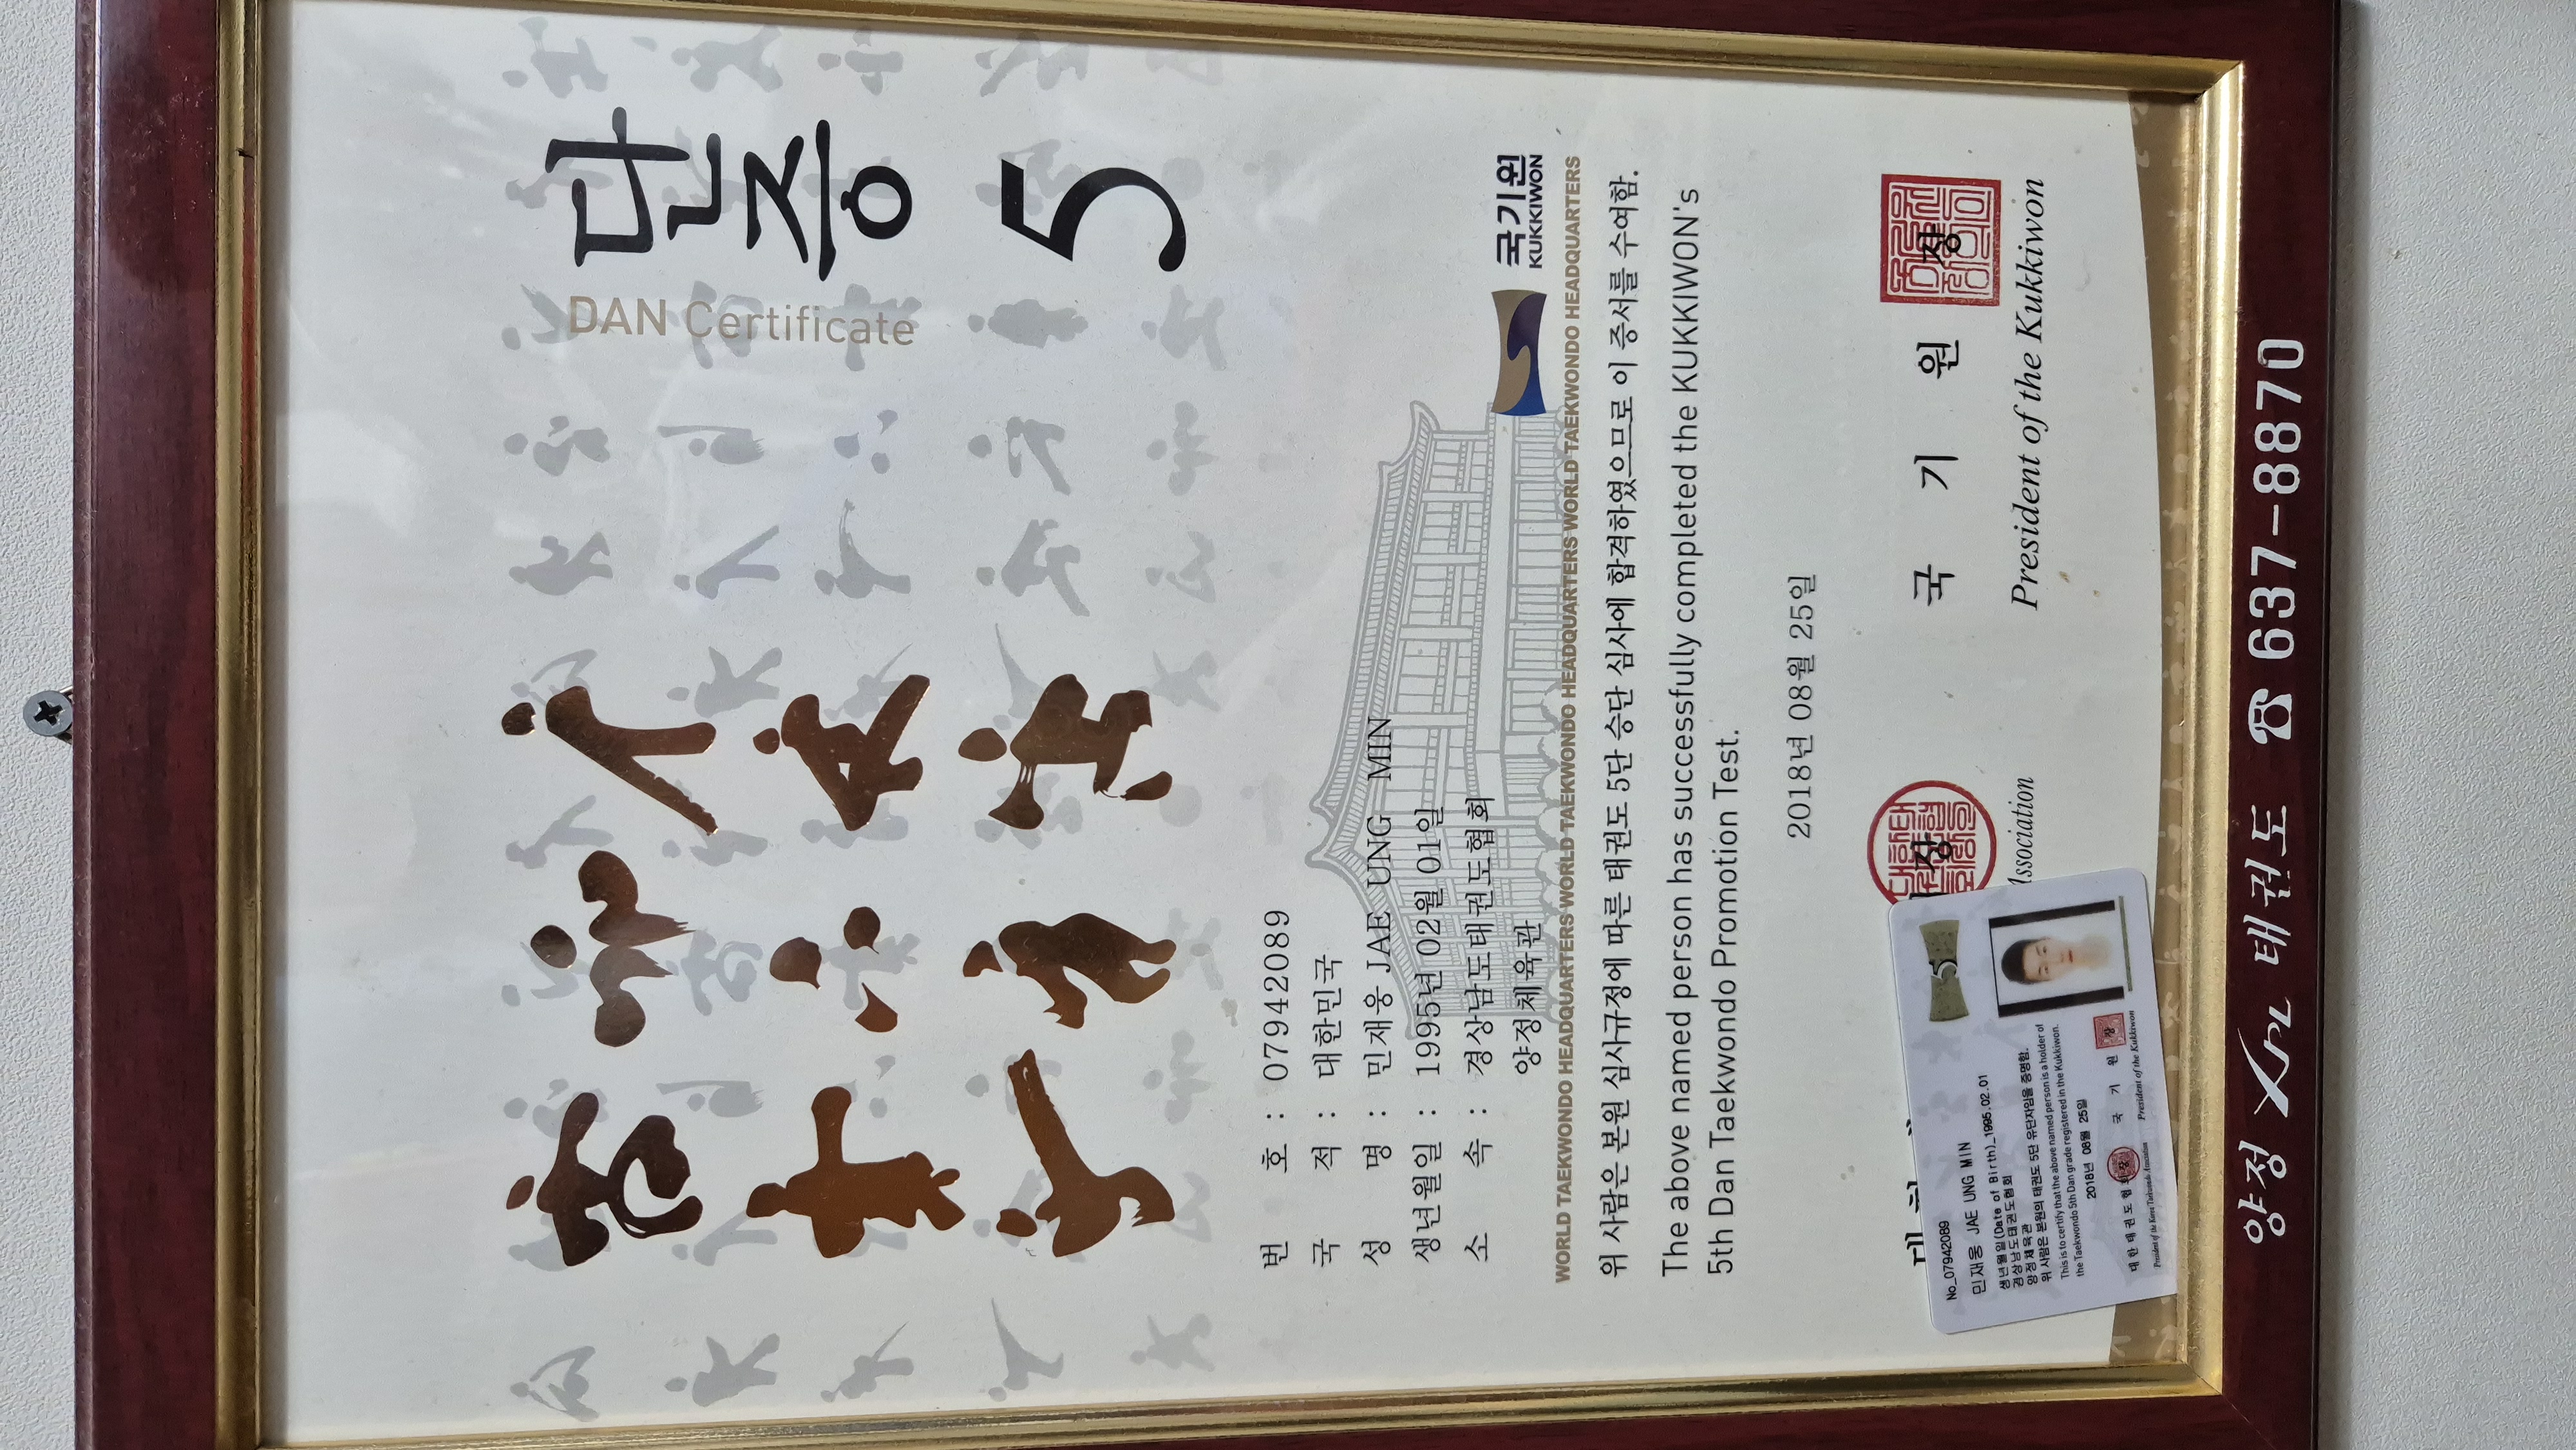 단증
DAN Certificate
5
번 호 : 07942089
국 적 : 대한민국
성 명 : 민재웅 JAE UNG MIN
생년월일 : 1995년 02월 01일
소 속 : 경상남도태권도협회
양정체육관
국기원
KUKKIWON
WORLD TAEKWONDO HEADQUARTERS WORLD TAEKWONDO HEADQUARTERS WORLD TAEKWONDO HEADQUARTERS WORLD TAEKWONDO HEADQUARTERS
위 사람은 본원 심사규정에 따른 태권도 5단 승단 심사에 합격하였으므로 이 증서를 수여함.
The above named person has successfully completed the KUKKIWON's
5th Dan Taekwondo Promotion Test.
2018년 08월 25일
장 국 기 원 장
Association President of the Kukkiwon
5
No_07942089
민재웅 JAE UNG MIN
생년월일(Date of Birth)_1995.02.01
경상남도태권도협회
양정체육관
위 사람은 본원의 태권도 5단 유단자임을 증명함.
This is to certify that the above named person is a holder of
the Taekwondo 5th Dan grade registered in the Kukkiwon.
2018년 08월 25일
대한태권도협회장 국 기 원 장
President of the Korea Taekwondo Association President of the Kukkiwon
양정 태권도 ☎ 637-8870